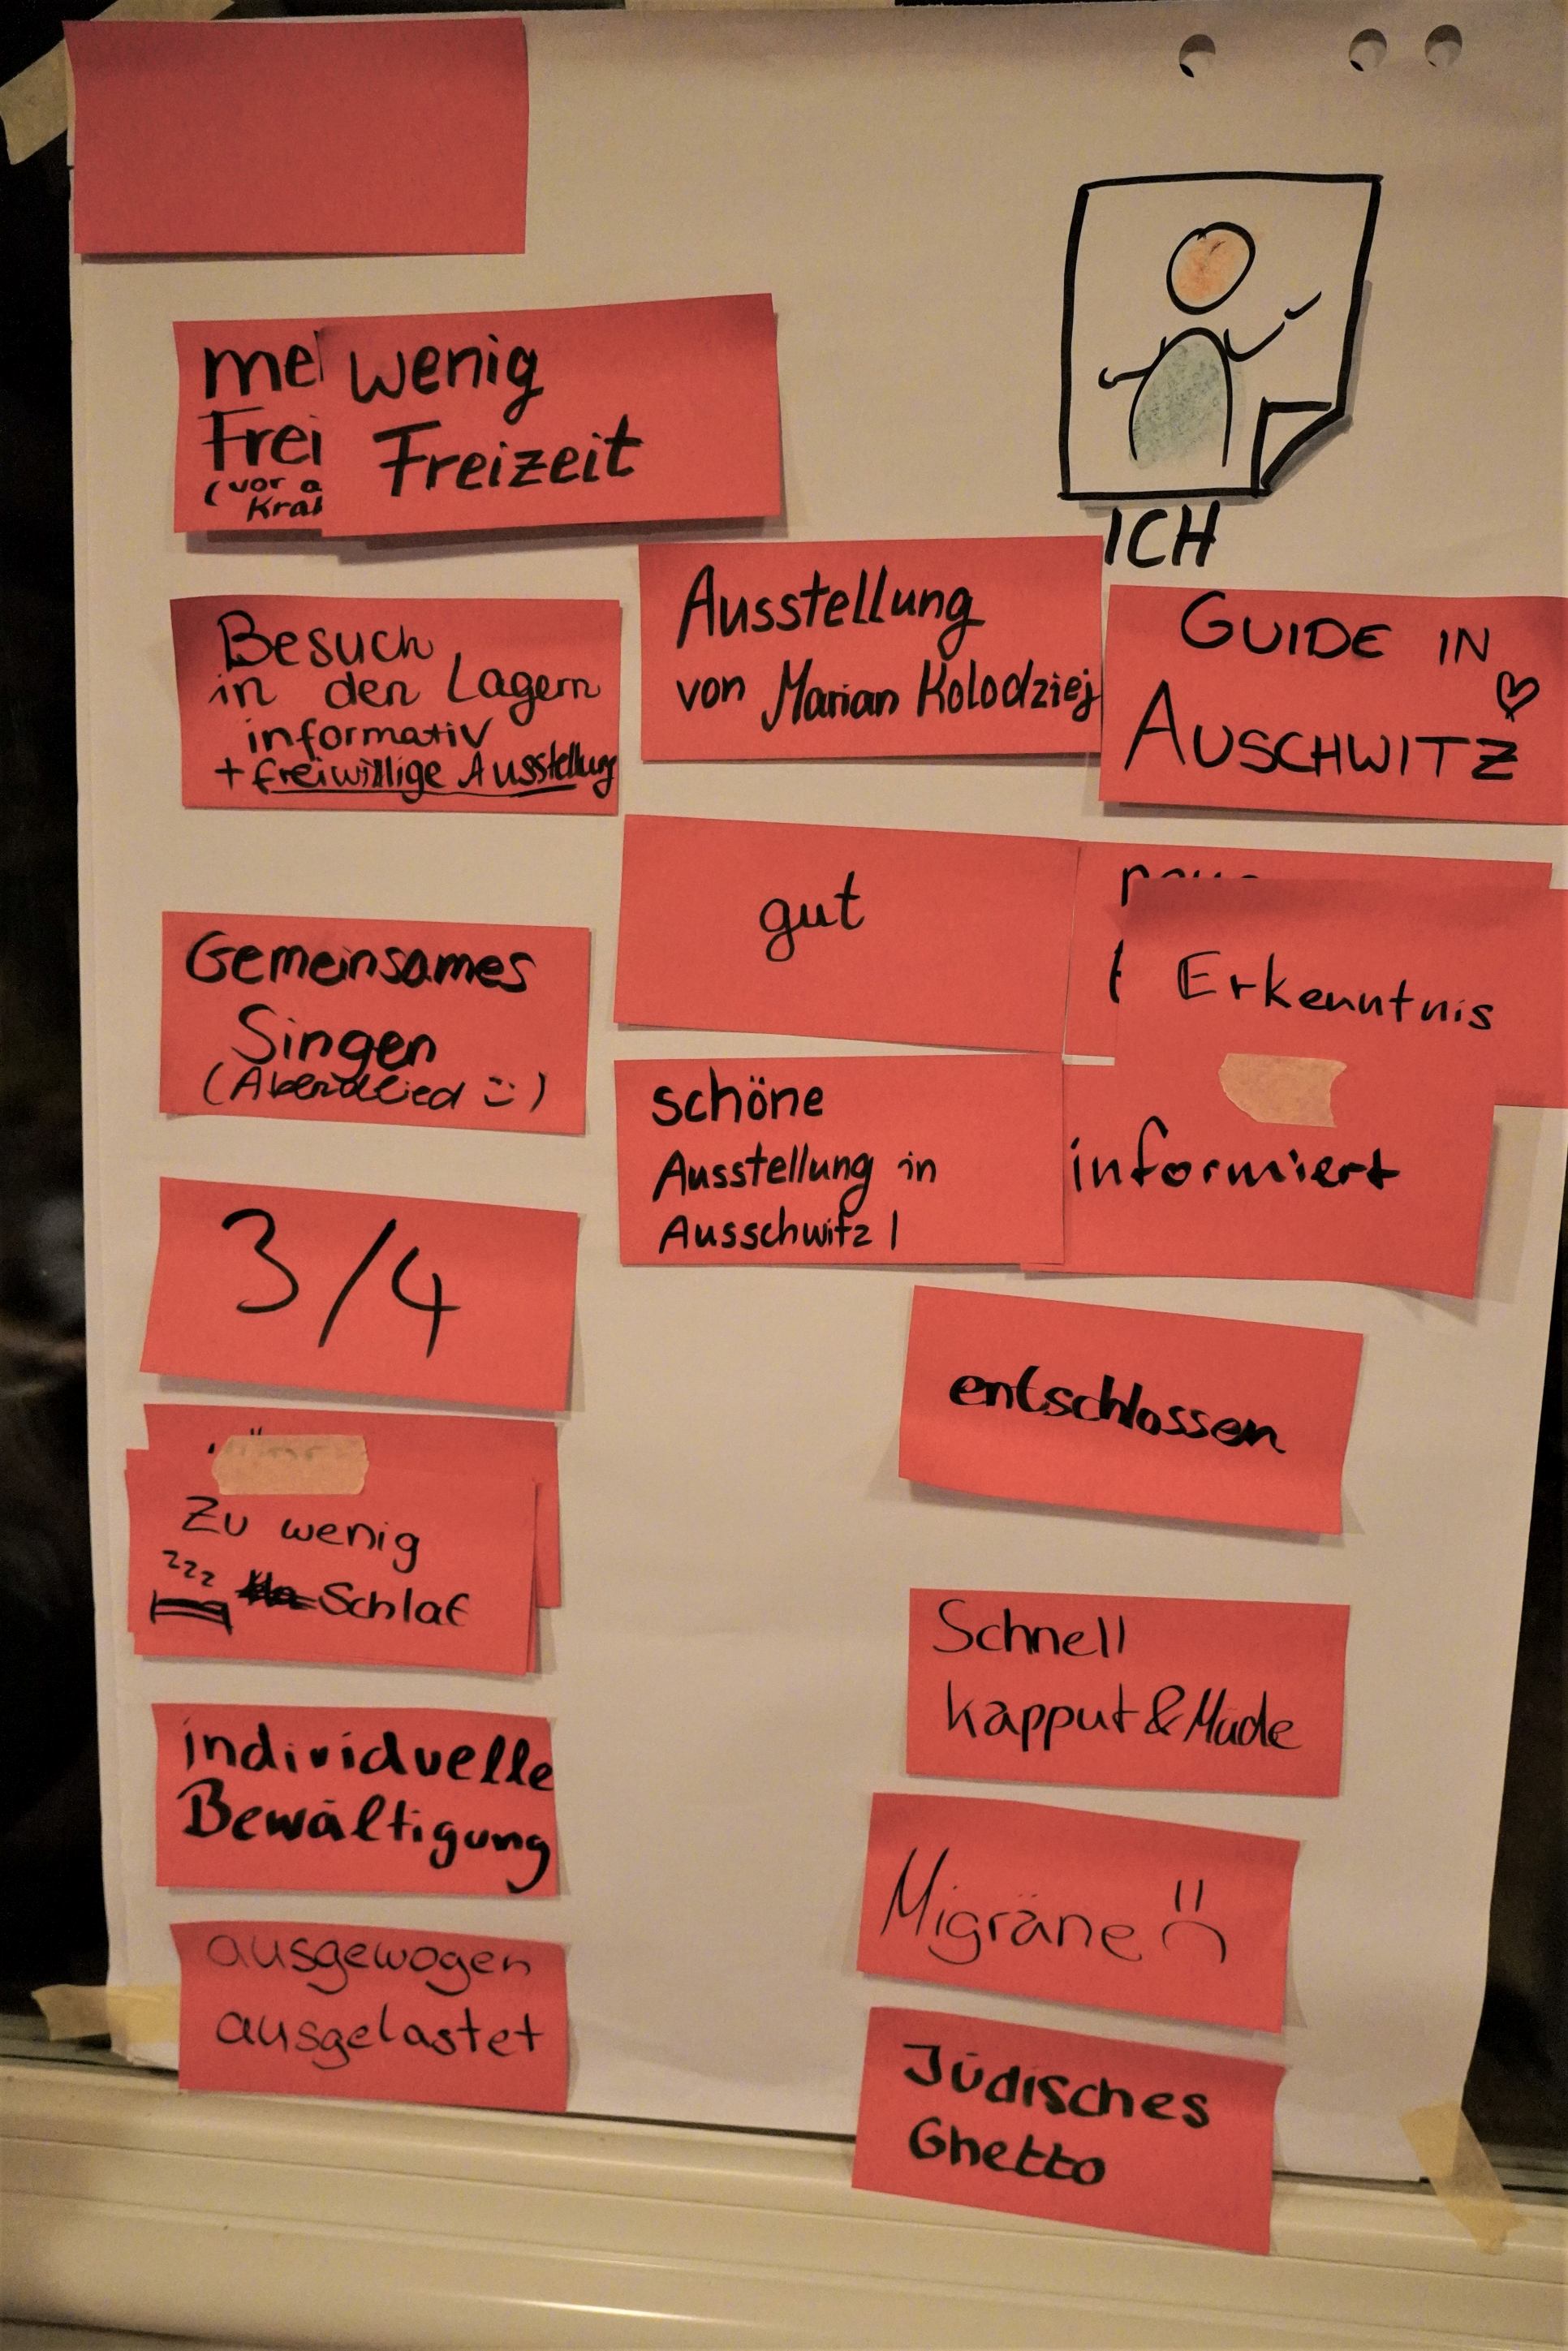 wenig
Freizeit
ICH
Besuch
in den Lagern
informativ
+ freiwillige Ausstellung
Ausstellung
von Marian Kolodziej
GUIDE IN
AUSCHWITZ
gut
Erkenntnis
Gemeinsames
Singen
(Abendlied :-)
schöne
Ausstellung in
Ausschwitz 1
informiert
3/4
entschlossen
Zu wenig
zzz Schlaf
Schnell
kapput & Müde
individuelle
Bewältigung
Migräne
ausgewogen
ausgelastet
Jüdisches
Ghetto